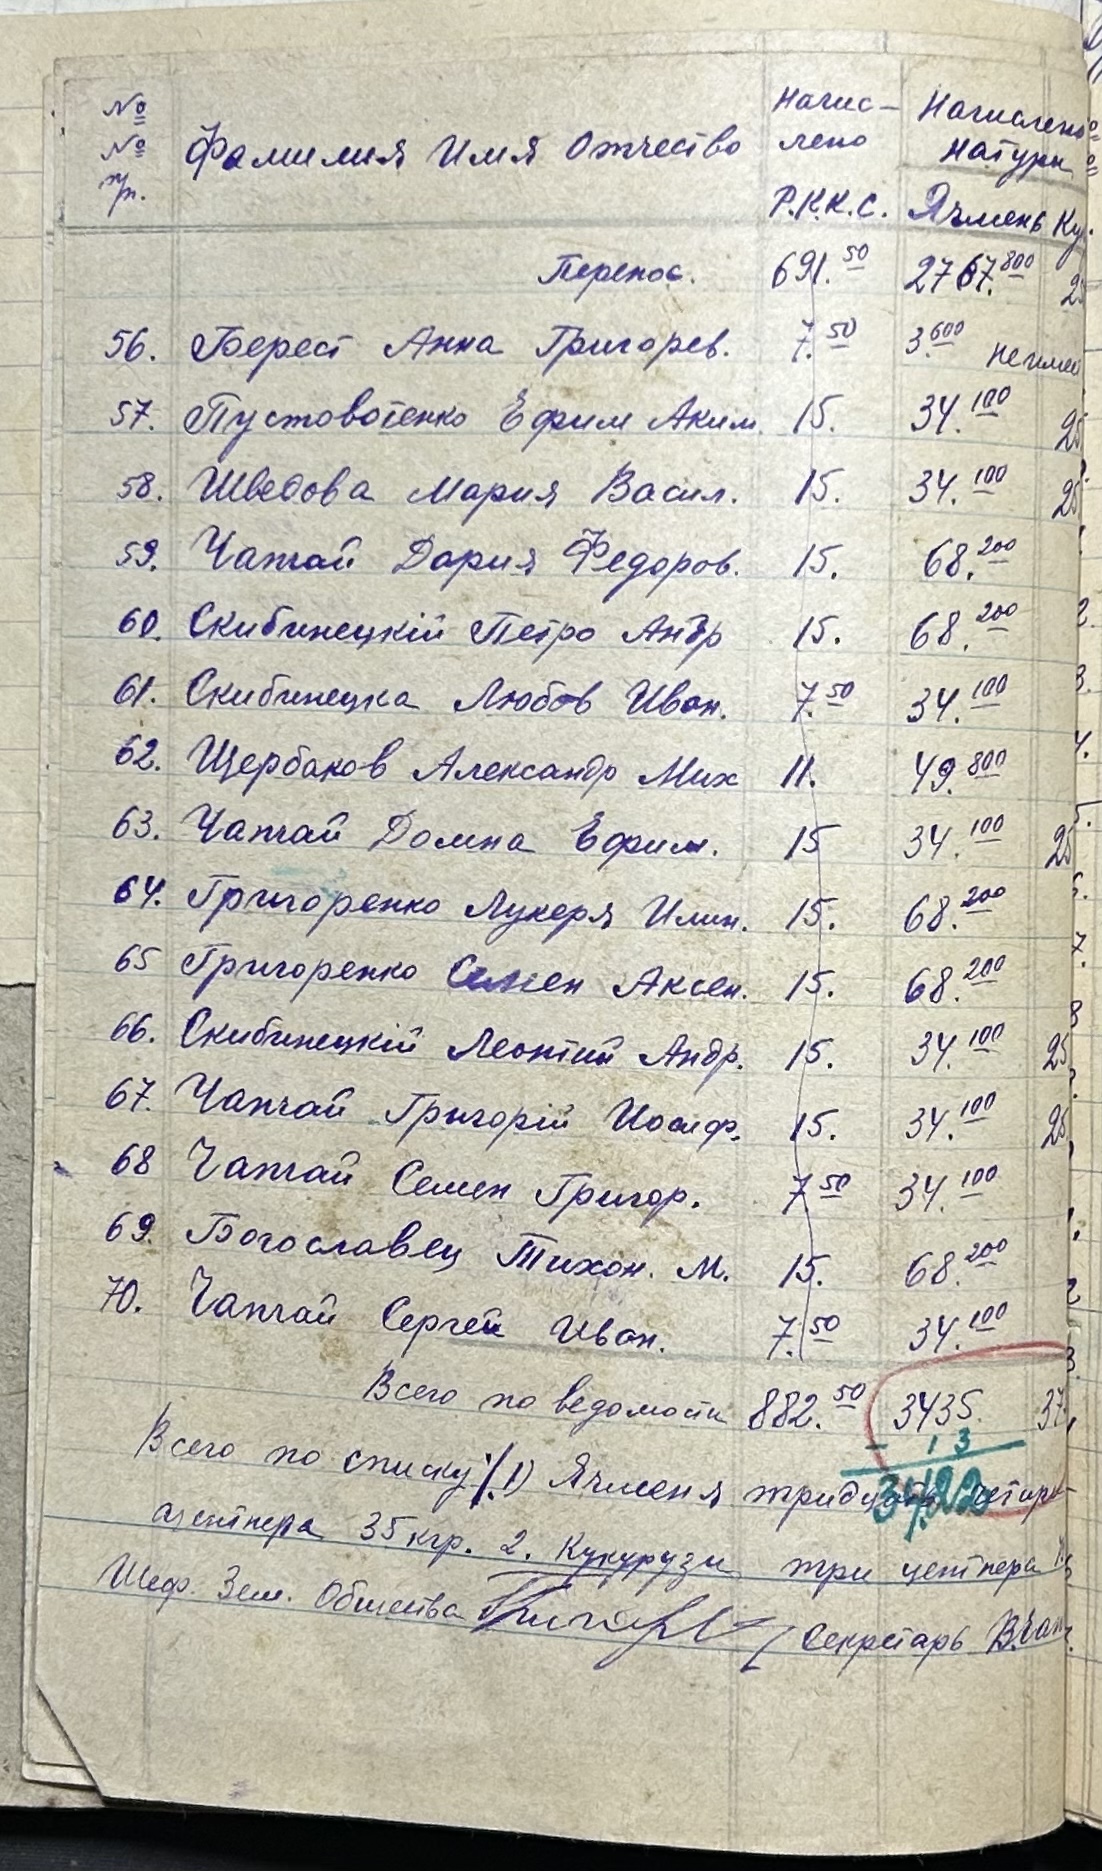 № № пп. Фамилия Имя Отчество Начис-лено Начислено натури
Р.К.К.С. Ячмень Ку
Перенос. 691.50 2767.800 25
56. Берест Анна Григорев. 7.50 3.600 неимее
57. Пустовотенко Ефим Аким. 15. 34.100 25
58. Шведова Мария Васил. 15. 34.100 25
59. Чапчай Дария Федоров. 15. 68.200
60. Скибинецкій Петро Андр 15. 68.200
61. Скибинецка Любов Иван. 7.50 34.100
62. Щербаков Александр Мих 11. 49.800
63. Чапчай Домна Ефим. 15 34.100 25
64. Григоренко Лукеря Илин. 15. 68.200
65 Григоренко Семен Аксен. 15. 68.200
66. Скибинецкій Леонтий Андр. 15. 34.100 25
67. Чапчай Григорій Иосиф. 15. 34.100 25
68 Чапчай Семен Григор. 7.50 34.100
69. Богославец Тихон. М. 15. 68.200
70. Чапчай Сергей Иван. 7.50 34.100
Всего по ведомости 882.50 3435. 37
- 13
3422
Всего по списку 1) Ячменя тридцать четыре
центнера 35 кгр. 2. Кукурузи три центнера
Шеф. Зем. Общества Секретарь В.Чап